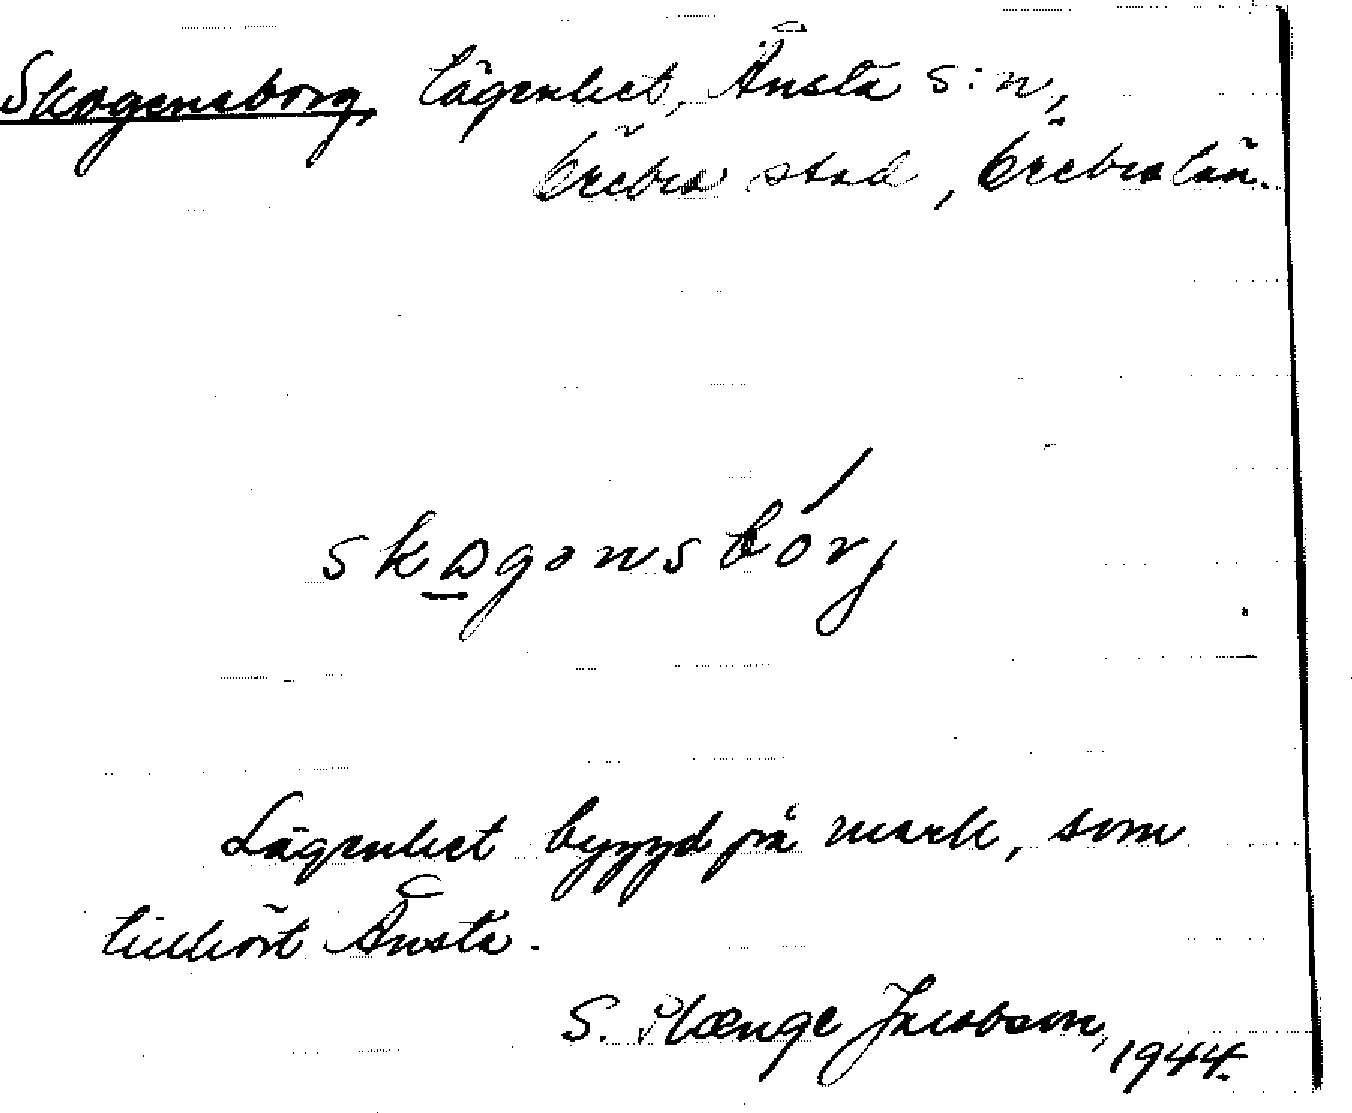 Skogensborg, lägenhet, Ånsta s:n,
Örebro stad, Örebro län.
skogənsbórj
Lägenhet byggd på mark, som
tillhört Ånsta.
S. Plænge Jacobson,
1944.